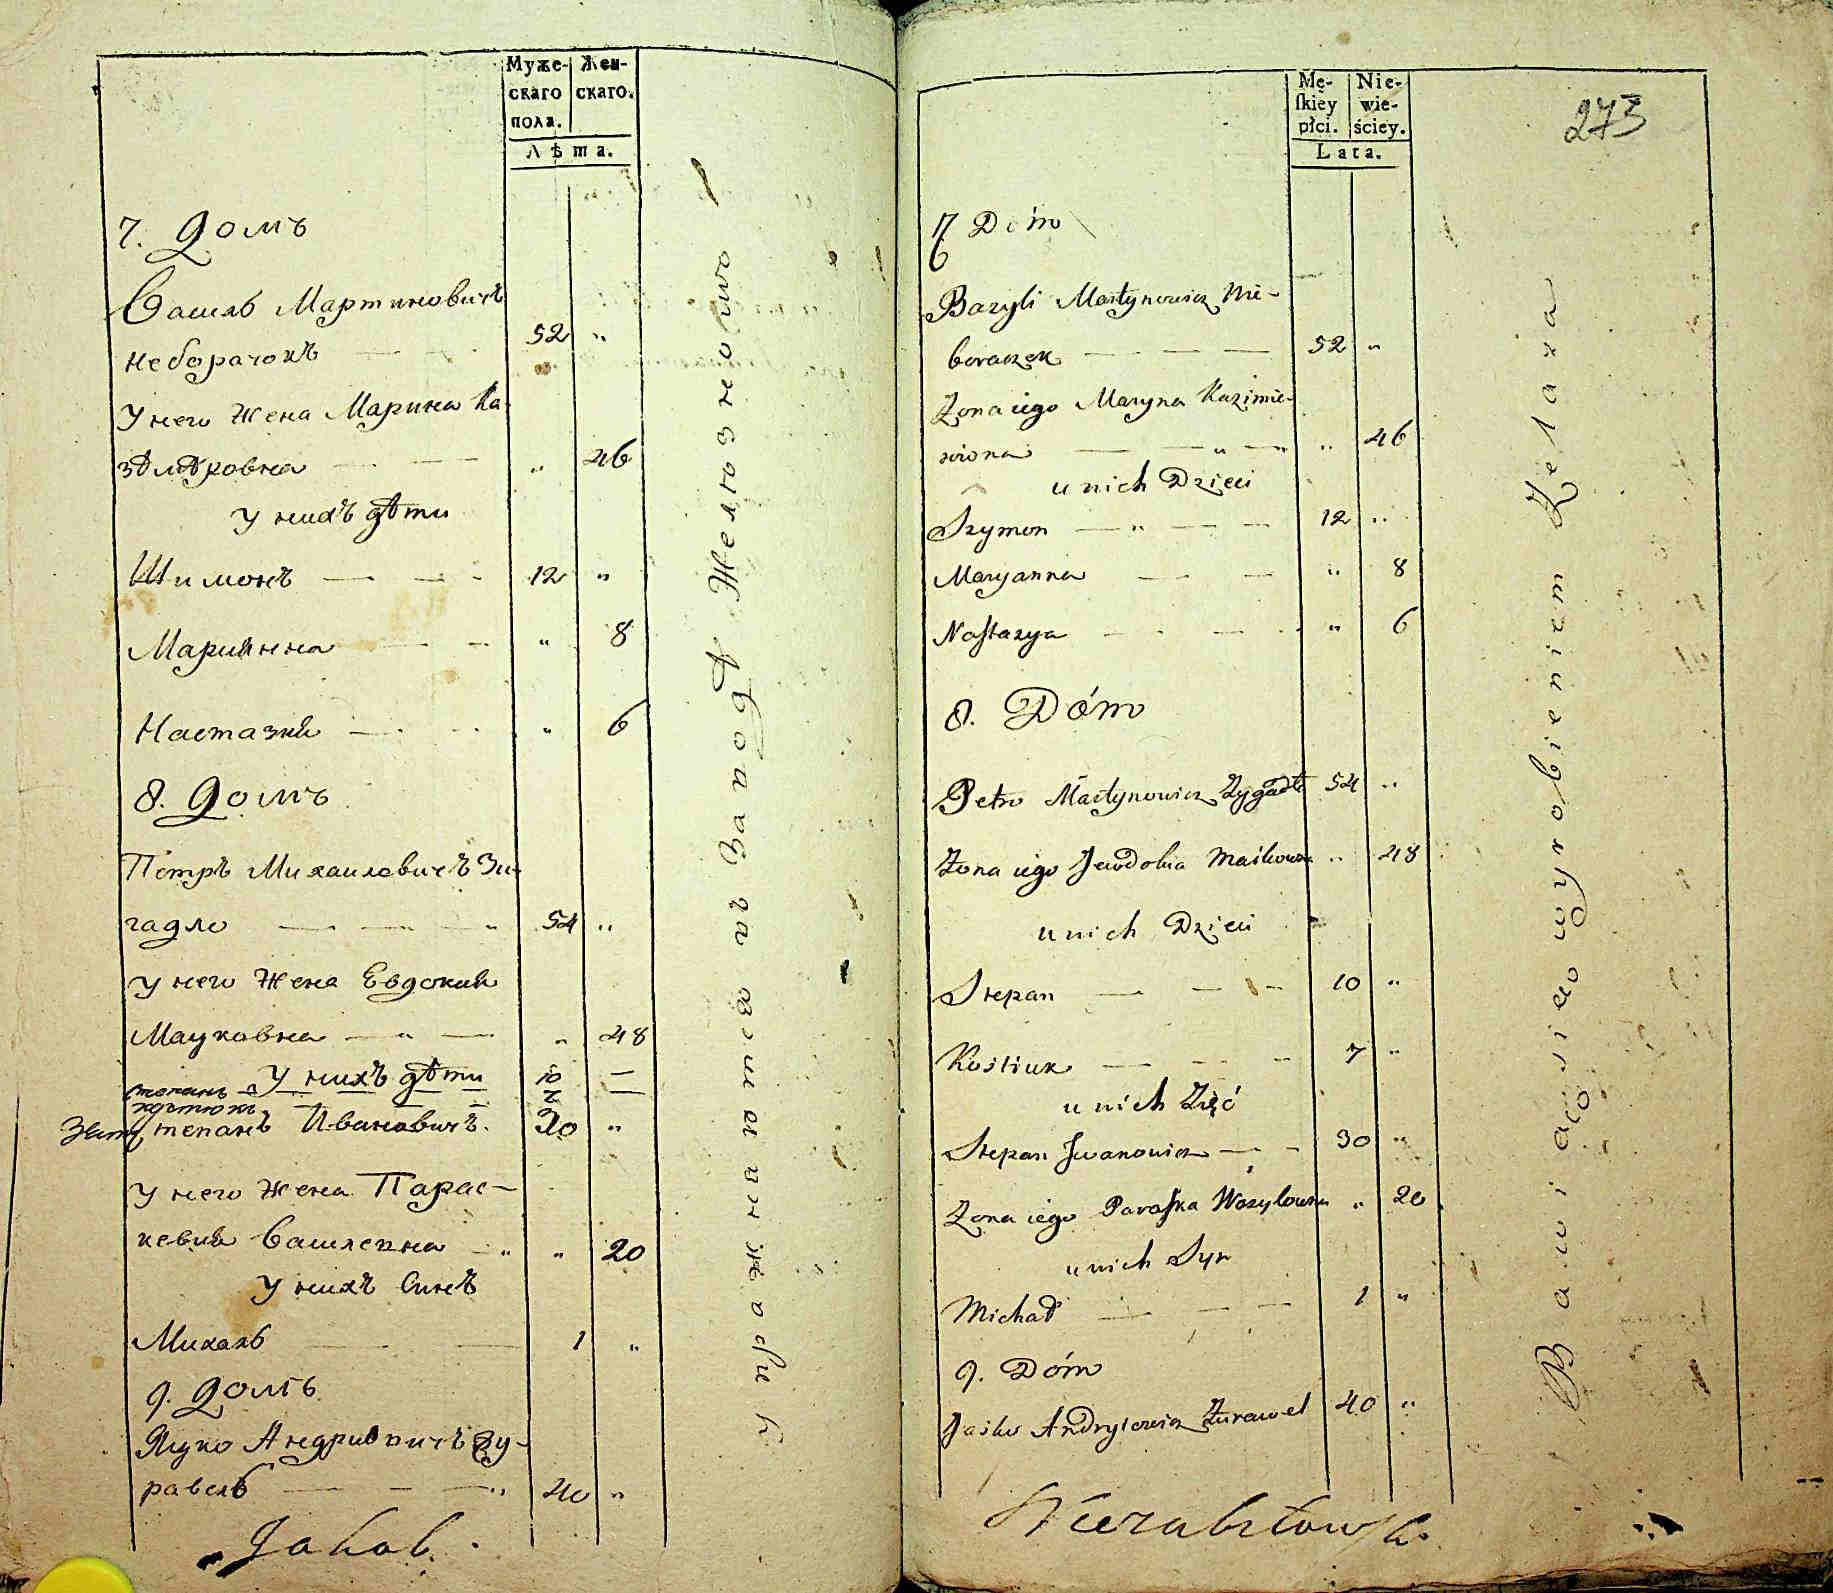 Муже- Жен-
скаго скаго.
пола.
Лѣта.
7. Домъ
Василь Мартиновичъ
Неборачокъ — — 52 "
У него Жена Марина Ка-
зѣмѣровна — — " 46
У нихъ дѣти
Шимонъ — — - 12 "
Мариянна — - " 8
Настазия — - - " 6
8. Домъ
Петръ Михаиловичъ Зи-
гадло — — " 54 "
У него Жена Евдокия
Мацковна — " — " 48
У нихъ дѣти
Степанъ — — — 10 —
Костюкъ — — — 7 —
Зять Степанъ Ивановичъ. 30 "
У него Жена Парас-
кевия Василевна — " " 20
У нихъ Синъ
Михаль — — 1 "
9. Домъ
Яцко Андриевичъ Жу-
равель — — — " 40 "
Jakob
Упражняются въ Заподѣ Желюзного
Mę- Nie-
ſkiey wie-
płci. ściey.
Lata.
273
7 Dóm
Bazyli Martynowicz Nie-
boraczek — — — 52 "
Żona iego Maryna Kazimie-
rowna — " — " " 46
u nich Dzieci
Szymon — " — — 12 "
Maryanna — — " 8
Nastazya — - — - " 6
8. Dóm
Petro Martynowicz Zygadło 54 "
Żona iego Jewdokia Maikowna " 48
u nich Dzieci
Stepan — — - 10 "
Kostiuk — - - 7 "
u nich Zięć
Stepan Jwanowicz — - 30 "
Żona iego Paraska Wasylowna " 20
u nich Syn
Michał — — — 1 "
9. Dóm
Jasko Andryiewicz Żurawel 40 "
Bawiący się wyrobieniem Żelaza